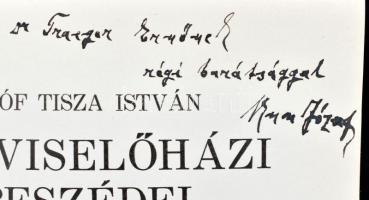 Dr Traeger Ernőnek
régi barátsággal
Kun József
ÓF TISZA ISTVÁN
VISELŐHÁZI
BESZÉDEI